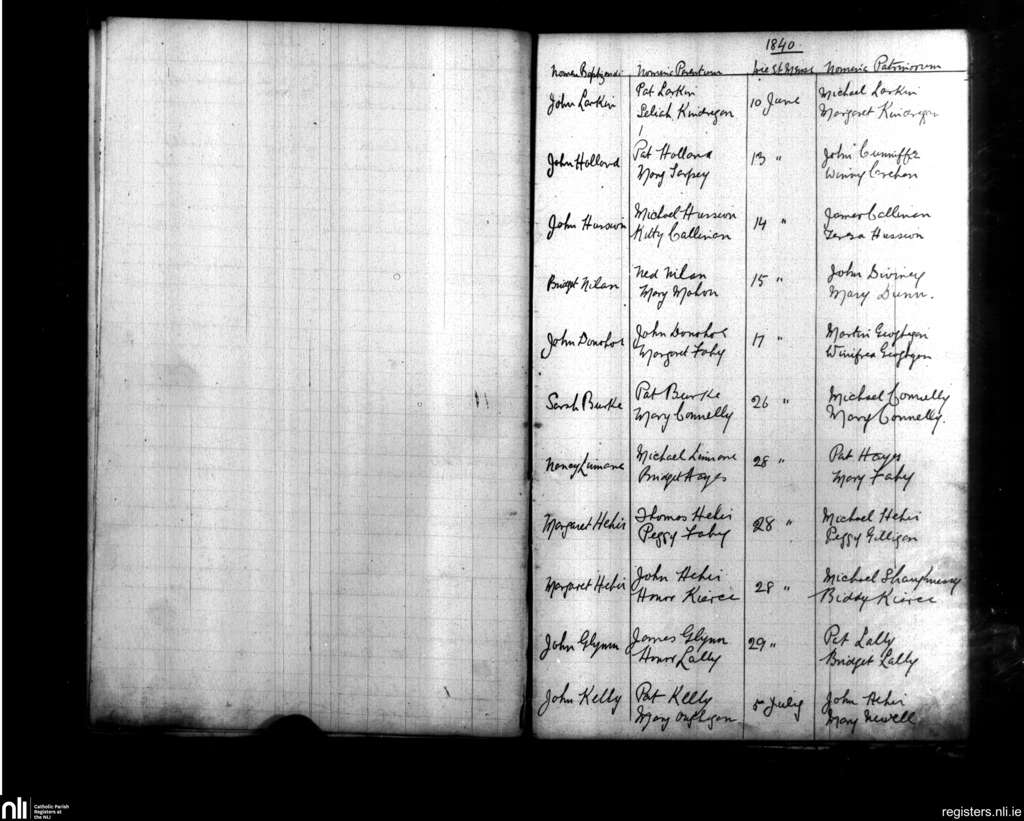 1840.
Nomen Baptizandi Nomina Parentum Die et Mense Nomina Patrinorum
John Larkin Pat Larkin 10 June Michael Larkin
Seliah Kindregan Margaret Kindregan
John Holland Pat Holland 13 " John Cunniffe
Mary Winny
John Hussion Michael Hussion 14 " James Callinan
Kitty Callinan Teresa Hussion
Bridget Nilan Ned Nilan 15 " John Diviney
Mary Mahon Mary Dunn.
John Donohoe John Donohoe 17 " Martin Geoghegan
Margaret Fahy Winifred Geoghegan
Sarah Burke Pat Burke 26 " Michael Connelly
Mary Connelly Mary Connelly.
Nancy Linnane Michael Linnane 28 " Pat Hayes
Bridget Hayes Mary Fahy
Margaret Hehir Thomas Hehir 28 " Michael Hehir
Peggy Fahy Peggy Gilligan
Margaret Hehir John Hehir 28 " Michael Shaughnessy
Honor Kierce Biddy Kierce
John Glynn James Glynn 29 " Pat Lally
Honor Lally Bridget Lally
John Kelly Pat Kelly 5 July John Hehir
Mary Mary Newell
nli Catholic Parish
Registers at
the NLI
registers.nli.ie